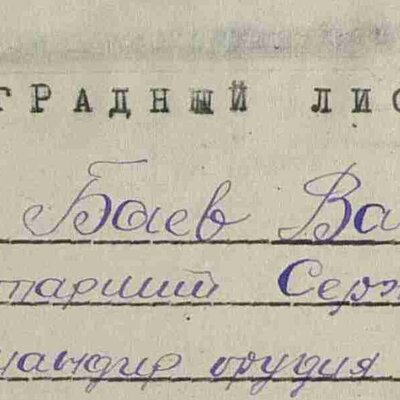 ГРАДНЫЙ ЛИС
Баев Ва
тарший Серж
мандир орудия